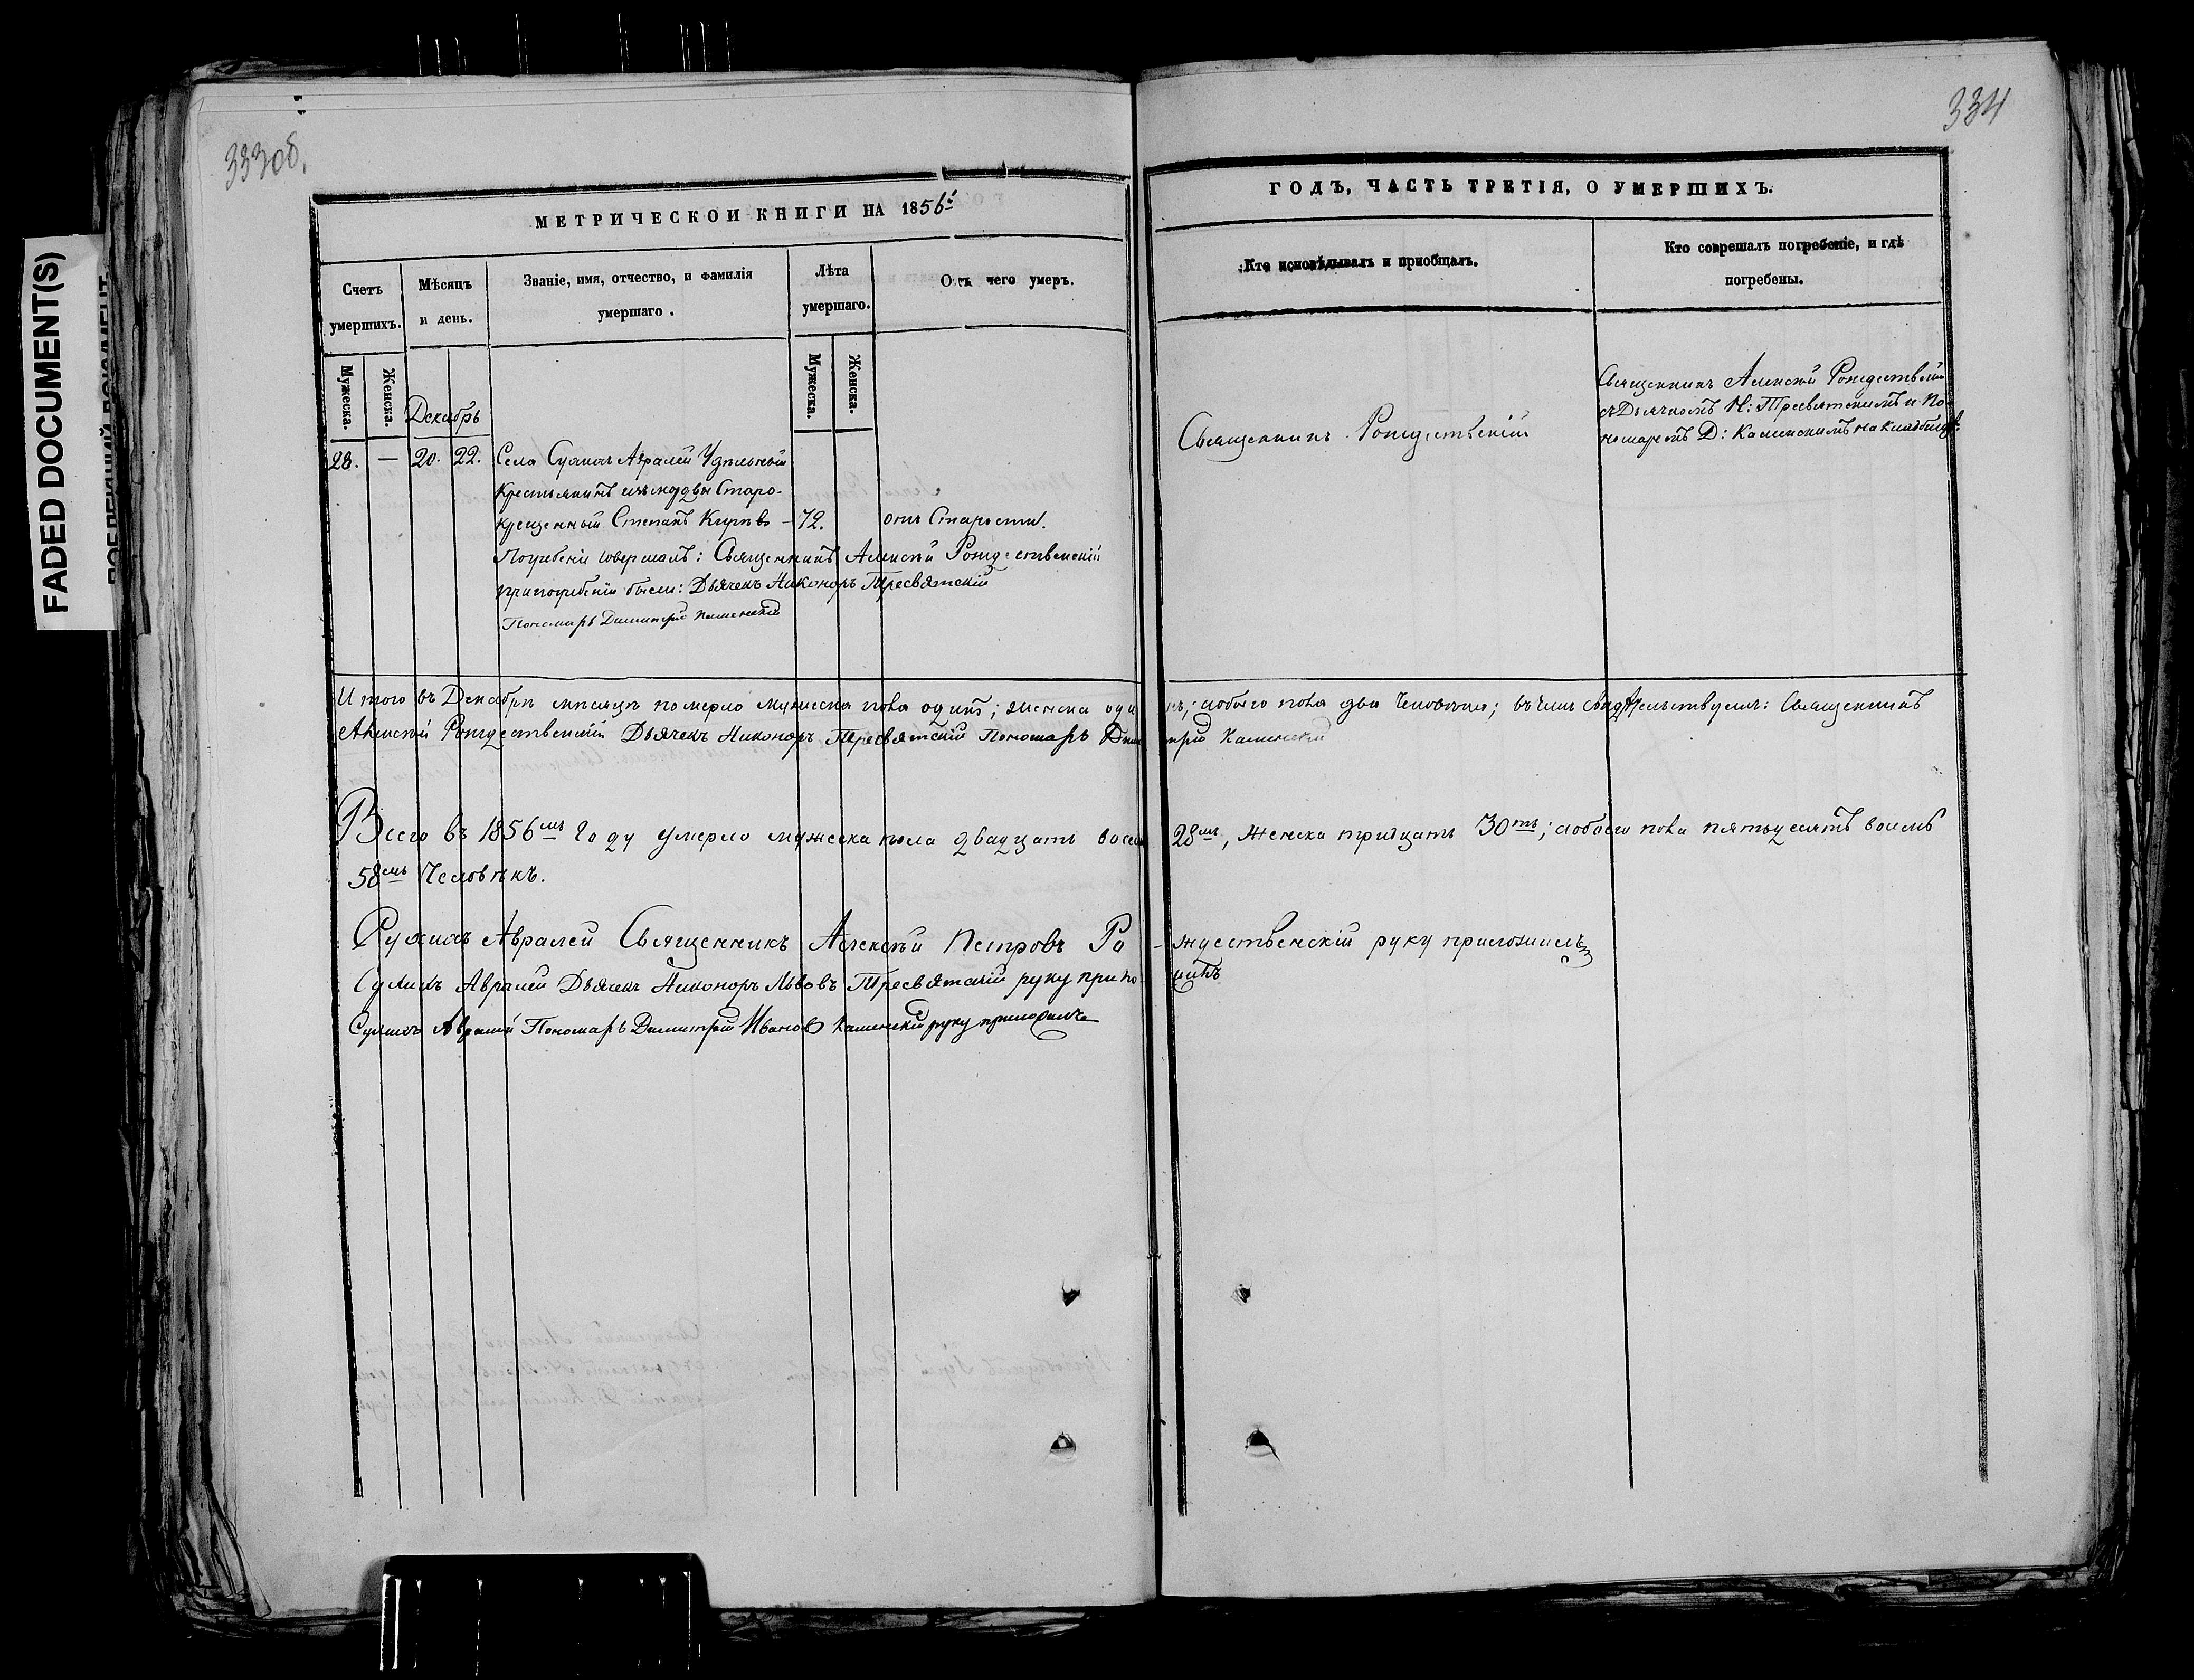 FADED DOCUMENT(S)
333об.
334
МЕТРИЧЕСКОЙ КНИГИ НА 1856й
ГОДЪ, ЧАСТЬ ТРЕТІЯ, О УМЕРШИХЪ.
Счетъ умершихъ.
Мѣсяцъ и день.
Званіе, имя, отчество, и фамилія умершаго.
Лѣта умершаго.
Отъ чего умеръ.
Кто исповѣдывалъ и пріобщалъ.
Кто соврешалъ погребеніе, и гдѣ погребены.
Мужеска.
Женска.
Мужеска.
Женска.
Декабрь
28. — 20. 22. Села Авралей Удѣльный
крестьянинъ изъ мордвы Старо-
крещенный Степанъ — 72. отъ Старости.
Погребеніе совершалъ: Священникъ Алексѣй Рождественскій
при погребеніи были: Дьячекъ Никоноръ Тресвятскій
Пономарь Димитрій Каменскій
Священникъ Рождественскій
Священникъ Алексѣй Рождественскій
съ Дьячкомъ Н: Тресвятскимъ и По-
номаремъ Д: Каменскимъ на кладбищѣ.
Итого въ Декабрѣ мѣсяцѣ померло мужеска пола одинъ; женска одна; обоего пола два человѣка; въ чемъ свидѣтельствуемъ: Священникъ
Алексѣй Рождественскій Дьячекъ Никоноръ Тресвятскій Пономарь Димитрій Каменскій
Всего въ 1856мъ Году умерло мужеска пола двадцать восемь 28мь, женска тридцать 30ть; обоего пола пятьдесятъ восемь
58мь Человѣкъ.
Авралей Священникъ Алексѣй Петровъ Рождественскій руку приложилъ
Авралей Дьячекъ Никоноръ Львовъ Тресвятскій руку приложилъ
Авралей Пономарь Димитрій Ивановъ Каменскій руку приложилъ